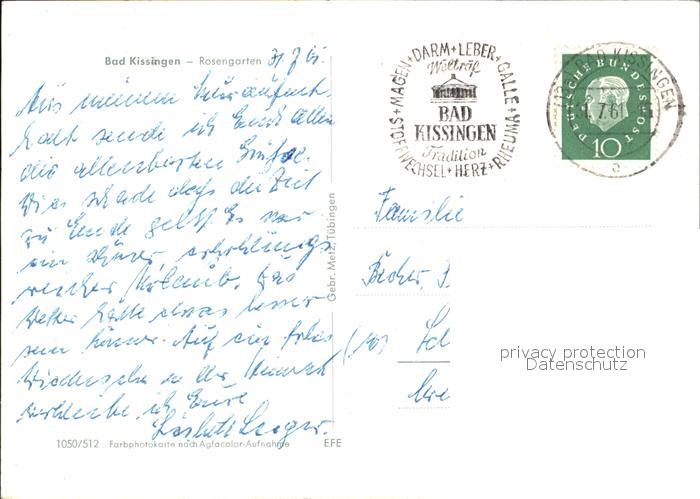 Bad Kissingen – Rosengarten 31.7.61.
Aus meinem Kuraufent-
halt sende ich Euch allen
die allerbesten Grüße.
Wie schade dass die Zeit
zu Ende geht. Es war
ein schöner, erholungs-
reicher Urlaub. Das
Wetter hätte etwas besser
sein können. Auf ein frohes
Wiedersehn in der Heimat
verbleibe ich Eure
1050/512 Farbphotokarte nach Agfacolor-Aufnahme EFE
Gebr. Metz, Tübingen
STOFFWECHSEL+MAGEN+DARM+LEBER+GALLE+RHEUMA+HERZ+
Weltruf
BAD
KISSINGEN
Tradition
BAD KISSINGEN
7.61
a
DEUTSCHE BUNDESPOST
10
Familie
Becher,
privacy protection
Datenschutz